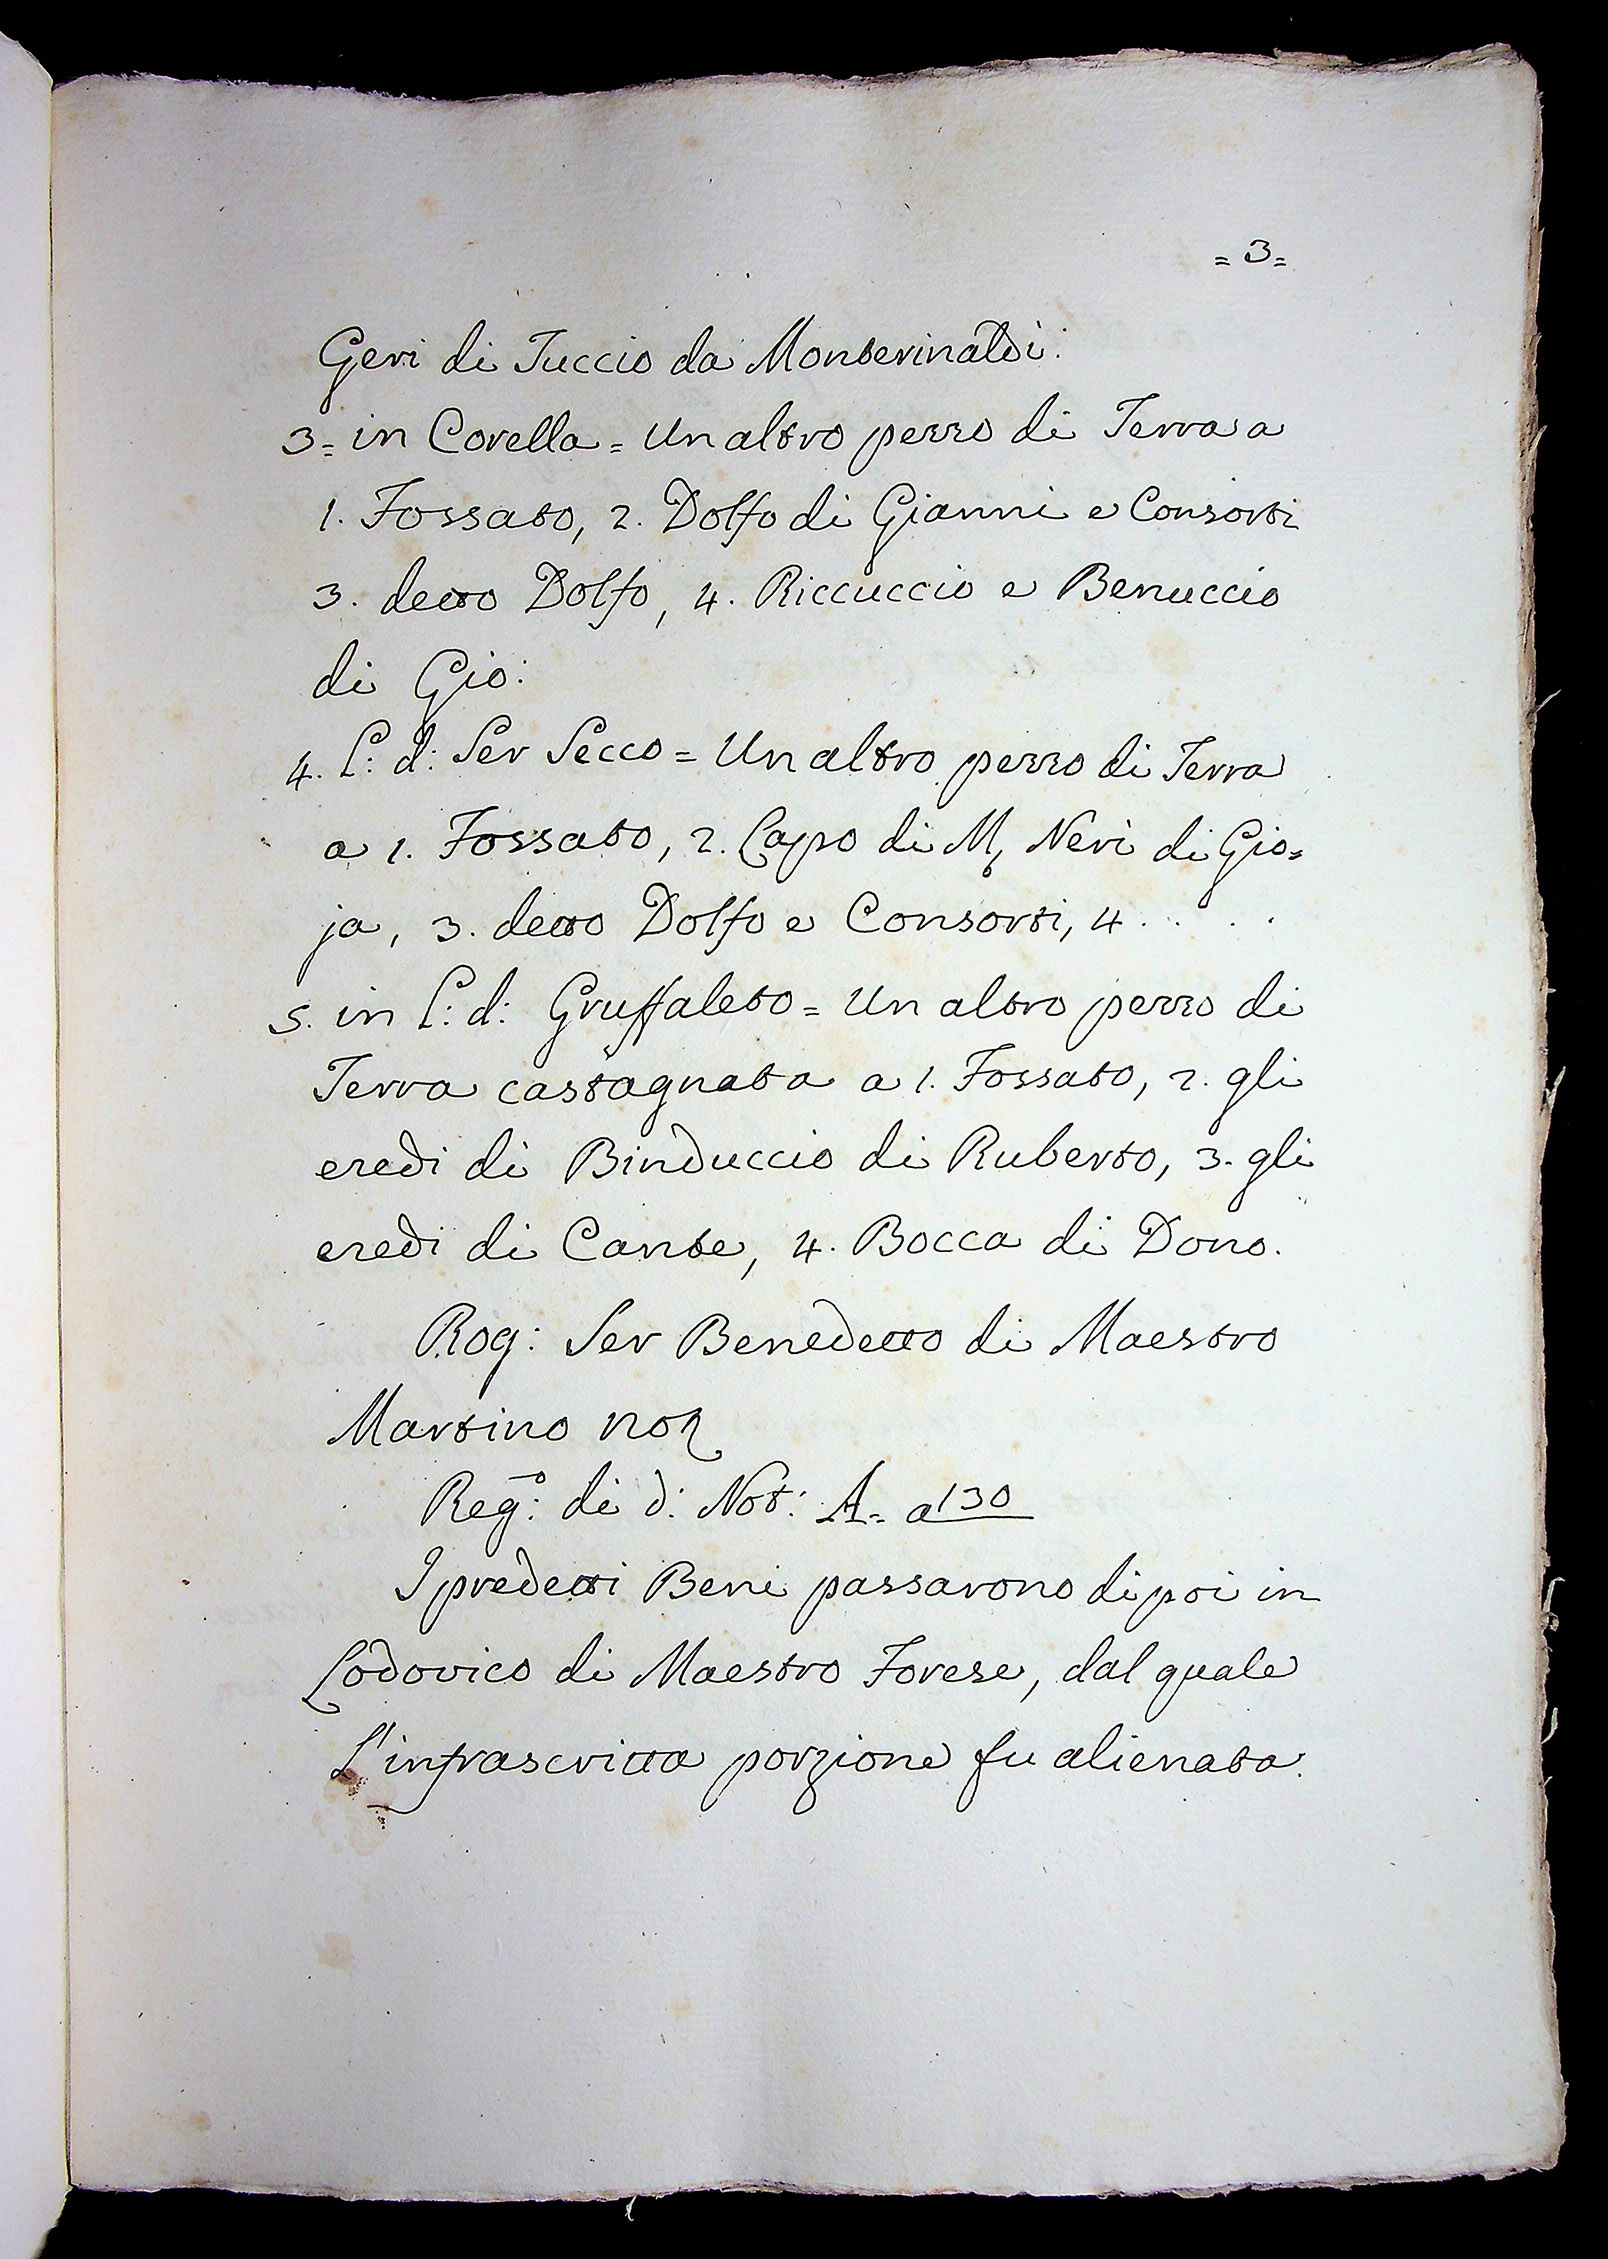 = 3 =
Geri di Tuccio da Monterinaldi.
3 = in Corella = Un altro pezzo di Terra a
1. Fossato, 2. Dolfo di Gianni e Consorti
3. detto Dolfo, 4. Riccuccio e Benuccio
di Gio:
4. L: d: Ser Secco = Un altro pezzo di Terra
a 1. Fossato, 2. Lapo di M, Neri di Gio=
ja, 3. detto Dolfo e Consorti, 4 . . . .
5. in L: d: Gruffaleto = Un altro pezzo di
Terra castagnata a 1. Fossato, 2. gli
eredi di Binduccio di Ruberto, 3. gli
eredi di Cante, 4. Bocca di Dono.
Rog: Ser Benedetto di Maestro
Martino not
Reg:º di d: Not: A = a 130
I predetti Beni passarono di poi in
Lodovico di Maestro Forese, dal quale
L'infrascritta porzione fu alienata.